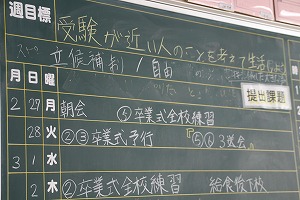 週目標
受験が近い人のことを考えて生活
立候補制/自由
提出課題
月 日 曜
2 27 月 朝会 ④卒業式全校練習
28 火 ②③卒業式予行 『⑤⑥3送会』
3 1 水
2 木 ②卒業式全校練習 給食後下校